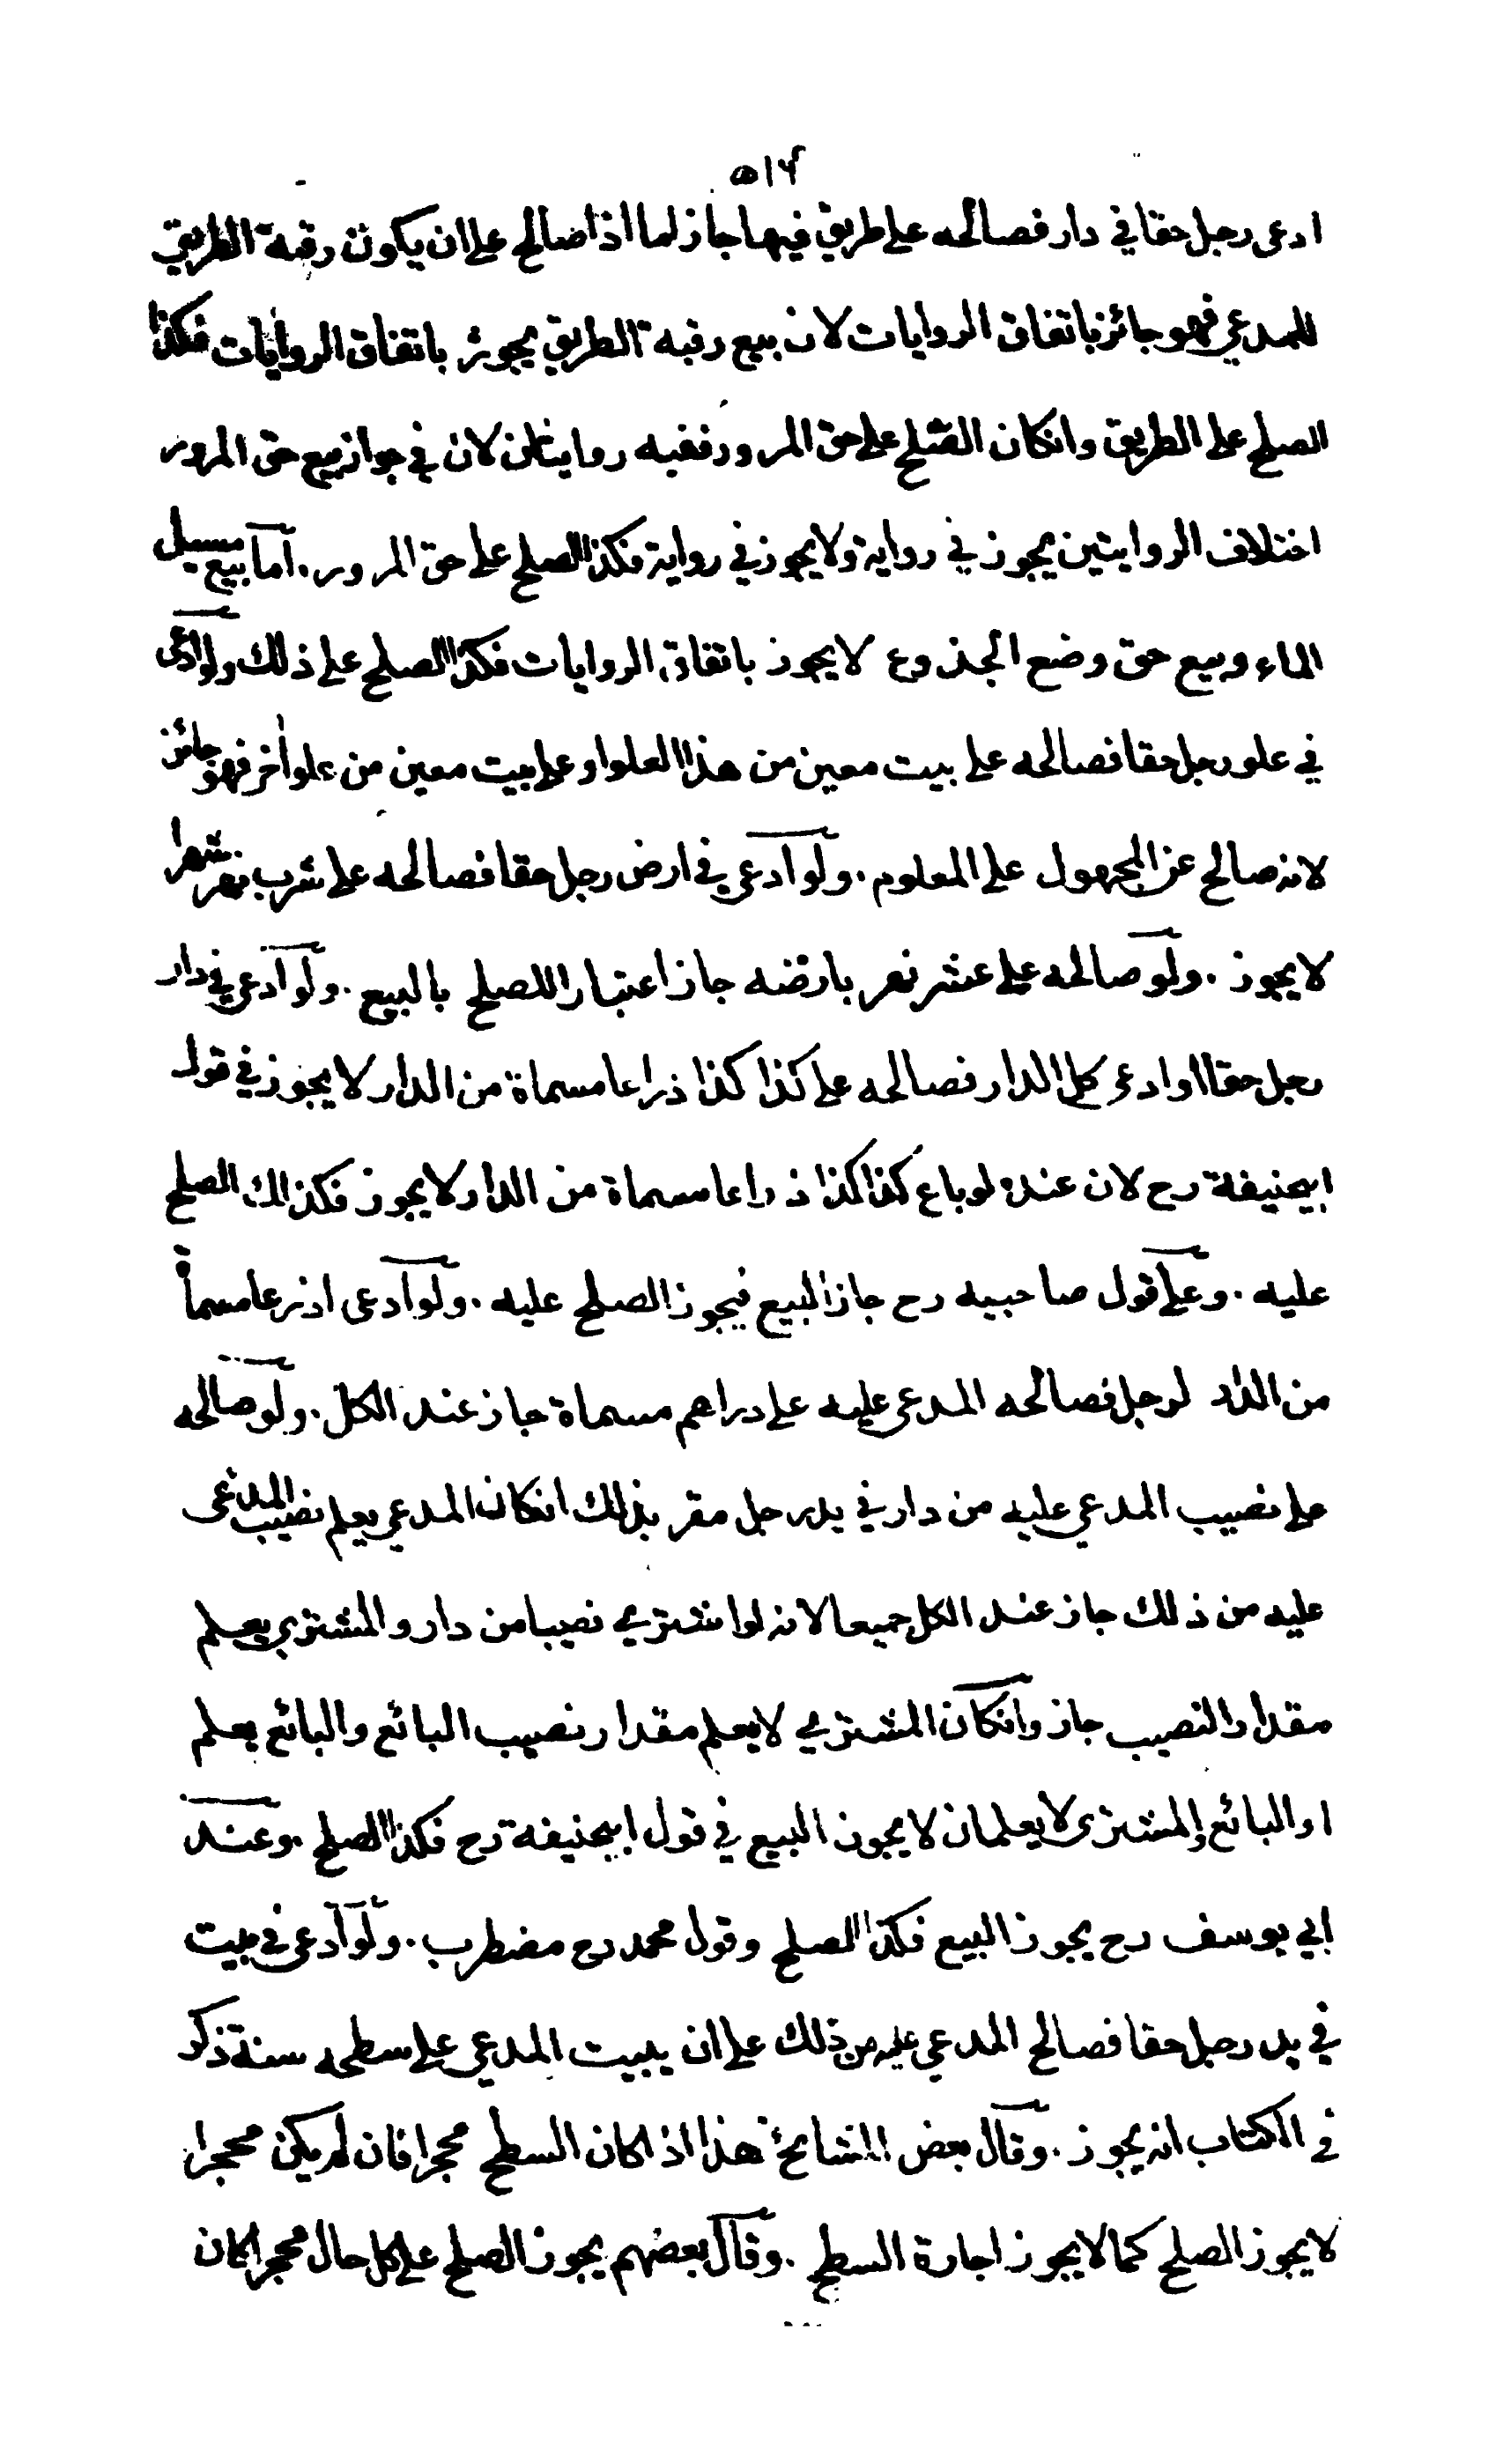 ٥١٢
ادعى رجل حقا في دار فصالحه على طريق فيها جاز لما اذا صالح على ان يكون رقبة الطريق
للمدعي فهو جائز باتفاق الروايات لان بيع رقبة الطريق يجوز باتفاق الروايات فكذا
الصلح على الطريق وانكان الصلح على حق المرور ففيه روايتان لان في جواز بيع حق المرور
اختلاف الروايتين يجوز في رواية ولا يجوز في رواية فكذا الصلح على حق المرور . اما بيع مسيل
الماء وبيع حق وضع الجذوع لا يجوز باتفاق الروايات فكذا الصلح على ذلك ولو ادعى
في علو رجل حقا فصالحه على بيت معين من هذا العلو او على بيت معين من علو اخر فهو جائز
لانه صالح عن المجهول على المعلوم . ولو ادعى في ارض رجل حقا فصالحه على شرب نهر شهرا
لا يجوز . ولو صالحه على عشر نهر بارضه جاز اعتبارا للصلح بالبيع . ولو ادعى في دار
رجل حقا او ادعى كل الدار فصالحه على كذا كذا ذراعا مسماة من الدار لا يجوز في قول
ابيحنيفة رح لان عنده لو باع كذا كذا ذراعا مسماة من الدار لا يجوز فكذلك الصلح
عليه . وعلى قول صاحبيه رح جاز البيع فيجوز الصلح عليه . ولو ادعى اذرعا مسماة
من الدار لرجل فصالحه المدعى عليه على دراهم مسماة جاز عند الكل . ولو صالحه
على نصيب المدعي عليه من دار في يد رجل مقر بذلك انكان المدعي يعلم نصيب المدعى
عليه من ذلك جاز عند الكل جميعا لانه لو اشترى نصيبا من دار والمشتري يعلم
مقدار النصيب جاز وانكان المشتري لا يعلم مقدار نصيب البائع والبائع يعلم
او البائع والمشترى لا يعلمان لا يجوز البيع في قول ابيحنيفة رح فكذا الصلح . وعند
ابي يوسف رح يجوز البيع فكذا الصلح وقول محمد رح مضطرب . ولو ادعى في بيت
في يد رجل حقا فصالح المدعى عليه من ذلك على ان يبيت المدعي على سطحه سنة ذكر
في الكتاب انه يجوز . وقال بعض المشائخ هذا اذا كان السطح محجرا فان لم يكن محجرا
لا يجوز الصلح كما لا يجوز اجارة السطح . وقال بعضهم يجوز الصلح على كل حال محجرا كان